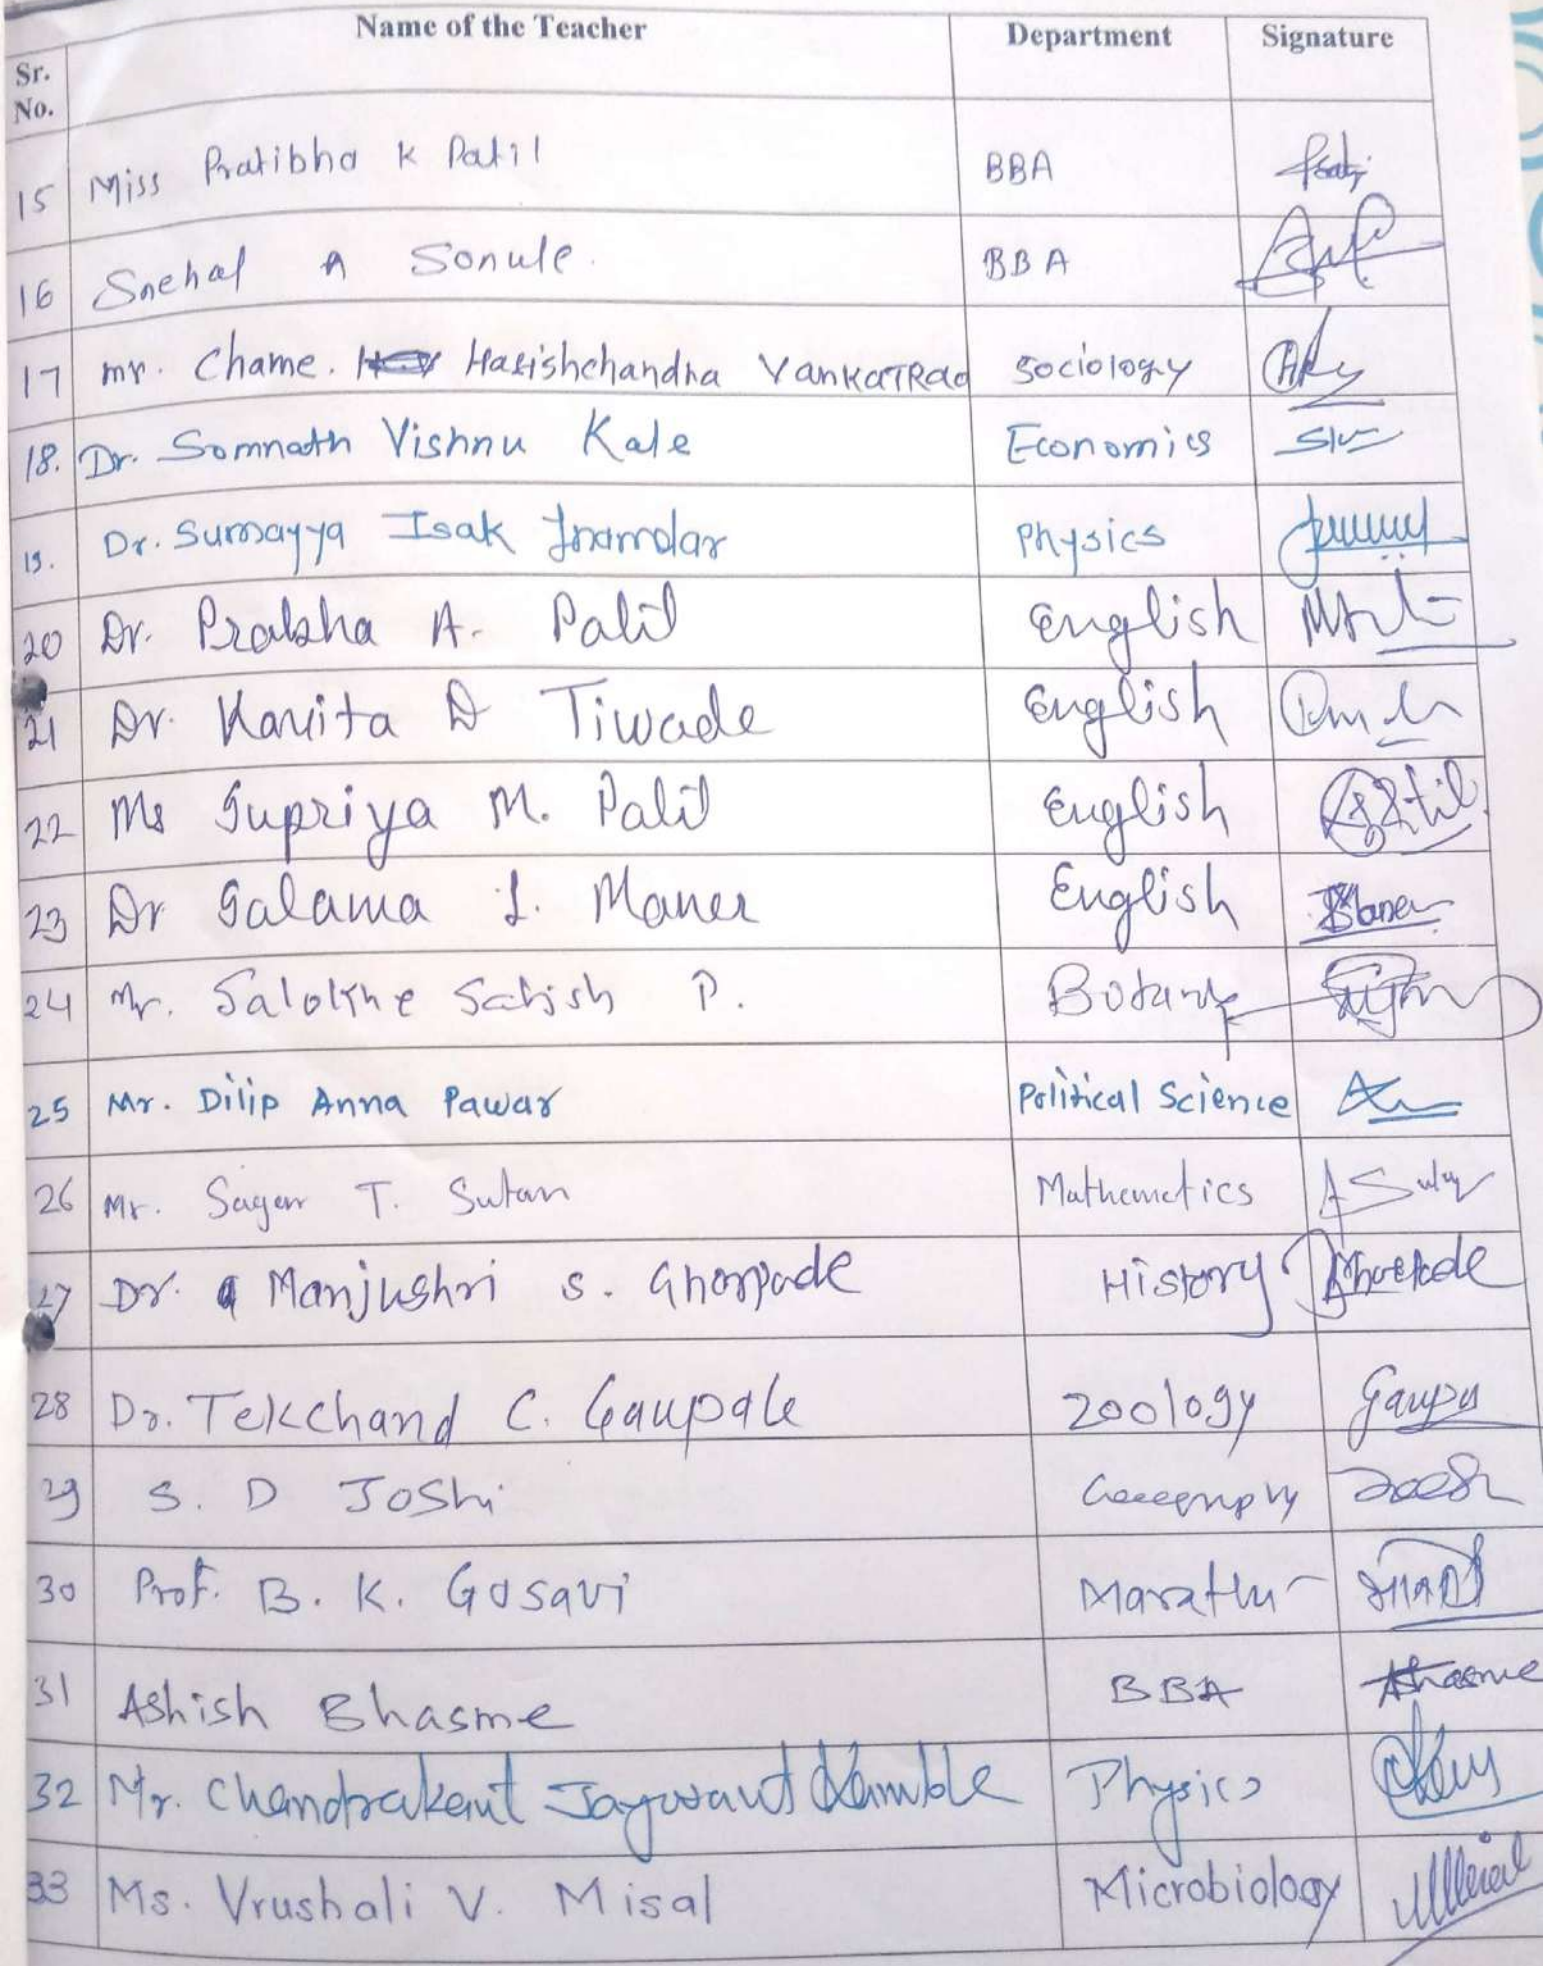 Name of the Teacher Department Signature
Sr.
No.
15 Miss Pratibha K Patil BBA
16 Snehal A Sonule. BBA
17 mr. Chame. Harishchandra VankatRao Sociology
18. Dr. Somnath Vishnu Kale Economics
19. Dr. Sumayya Isak Inamdar Physics
20 Dr. Prabha A. Patil English
21 Dr. Kavita D Tiwade English
22 Ms Supriya M. Patil English
23 Dr Salama I. Maner English Maner
24 Mr. Salokhe Satish P. Botany
25 Mr. Dilip Anna Pawar Political Science
26 Mr. Sagar T. Sutar Mathematics
27 Dr. Manjushri S. Ghorpade History
28 Dr. Tekchand C. Gaupale Zoology
29 S. D Joshi Geography
30 Prof. B. K. Gosavi Marathi
31 Ashish Bhasme BBA
32 Mr. Chandrakant Jaywant Kamble Physics
33 Ms. Vrushali V. Misal Microbiology